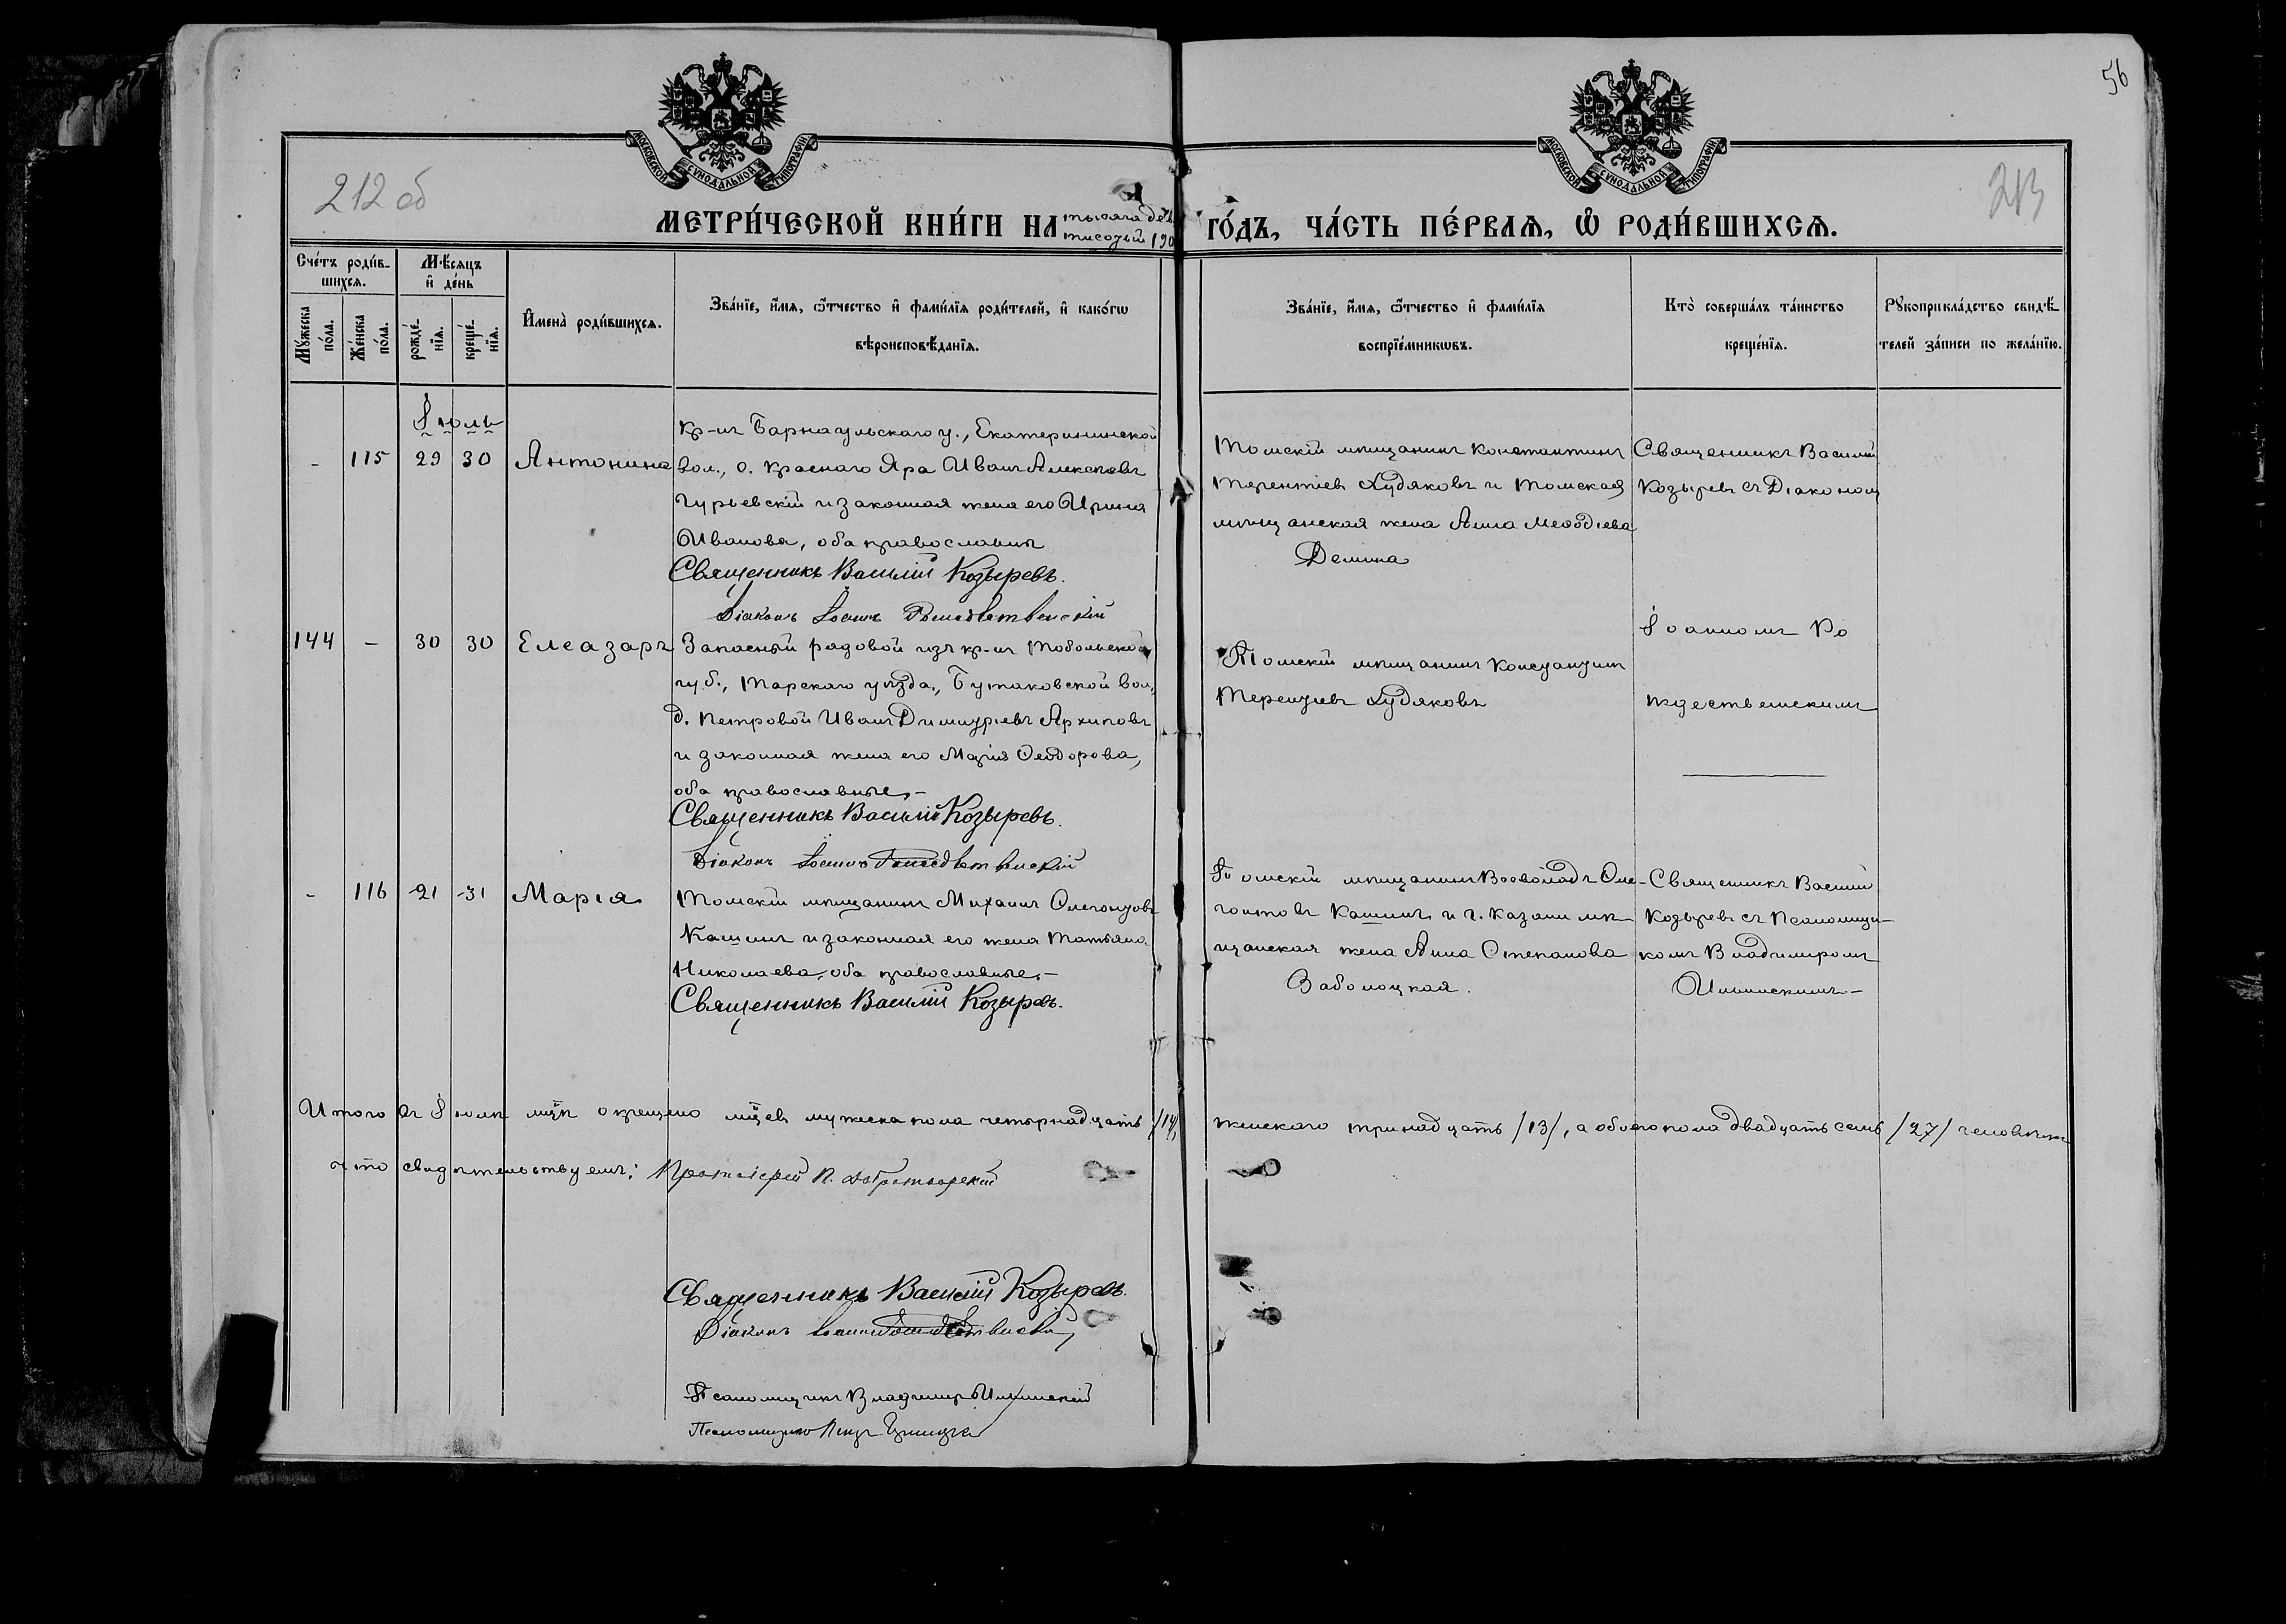 56
МОСКОВСКОЙ СѴНОДАЛЬНОЙ ТИПОГРАФІИ
МОСКОВСКОЙ СѴНОДАЛЬНОЙ ТИПОГРАФІИ
212 об
213
МЕТРИ́ЧЕСКОЙ КНИ́ГИ НА тысяча девʼ
тисотый 190
ГО́ДЪ, ЧА́СТЬ ПЕ́РВАѦ, Ѽ РОДИ́ВШИХСѦ.
Сче́тъ роди́в-
шихсѧ.
Му́жеска по́ла.
Же́нска по́ла.
Мѣ́сѧцъ
и҆ де́нь
рожде́-нїѧ.
креще́-нїѧ.
И҆мена̀ роди́вшихсѧ.
Зва́нїе, и҆́мѧ, ѻ҆́тчество и҆ фами́лїѧ роди́телей, и҆ како́гѡ
вѣроисповѣ́данїѧ.
Зва́нїе, и҆́мѧ, ѻ҆́тчество и҆ фами́лїѧ
воспрїе́мникѡвъ.
Кто̀ соверша́лъ та́инство
креще́нїѧ.
Рукоприкла́дство свидѣ́-
телей за́писи по жела́нїю.
Іюль
- 115 29 30 Антонина
Кр-нъ Барнаульскаго у., Екатерининской
вол., с. Краснаго Яра Иванъ Алексѣевъ
Гурьевскій и законная жена его Ирина
Иванова, оба православные
Священникъ Василій Козыревъ.
Діаконъ Іоаннъ Рождественскій
Томскій мѣщанинъ Константинъ
Терентіевъ Худяковъ и Томская
мѣщанская жена Анна Меѳодіева
Демина
Священникъ Василій
Козыревъ съ Діакономъ
Іоанномъ Ро
ждественскимъ
144 - 30 30 Елеазаръ
Запасный рядовой изъ кр-нъ Тобольской
губ., Тарскаго уѣзда, Бутаковской вол.,
д. Петровой Иванъ Димитріевъ Архиповъ
и законная жена его Марія Ѳеодорова,
оба православные,-
Священникъ Василій Козыревъ.
Діаконъ Іоаннъ Рождественскій
Томскій мѣщанинъ Константинъ
Терентіевъ Худяковъ
- 116 21 31 Марія
Томскій мѣщанинъ Михаилъ
Кашинъ и законная его жена Татьяна
Николаева, оба православные,-
Священникъ Василій Козыревъ.
Томскій мѣщанинъ Всеволодъ
Кашинъ и г. Казани мѣ
щанская жена Анна Степанова
Заболоцкая.
Священникъ Василій
Козыревъ съ Псаломщи-
комъ Владимиромъ
Ильинскимъ-
Итого въ Іюлѣ мцѣ окрещено мцевъ мужеска пола четырнадцать /14/,
женскаго тринадцать /13/, а обоего пола двадцать семь /27/ человѣкъ
что свидѣтельствуемъ: Протоіерей П. Добротворскій
Священникъ Василій Козыревъ.
Діаконъ Іоаннъ Рождественскій,
Псаломщикъ Владимиръ Ильинскій
Псаломщикъ